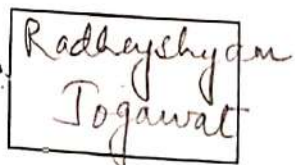 Radheyshyam
Jogawat